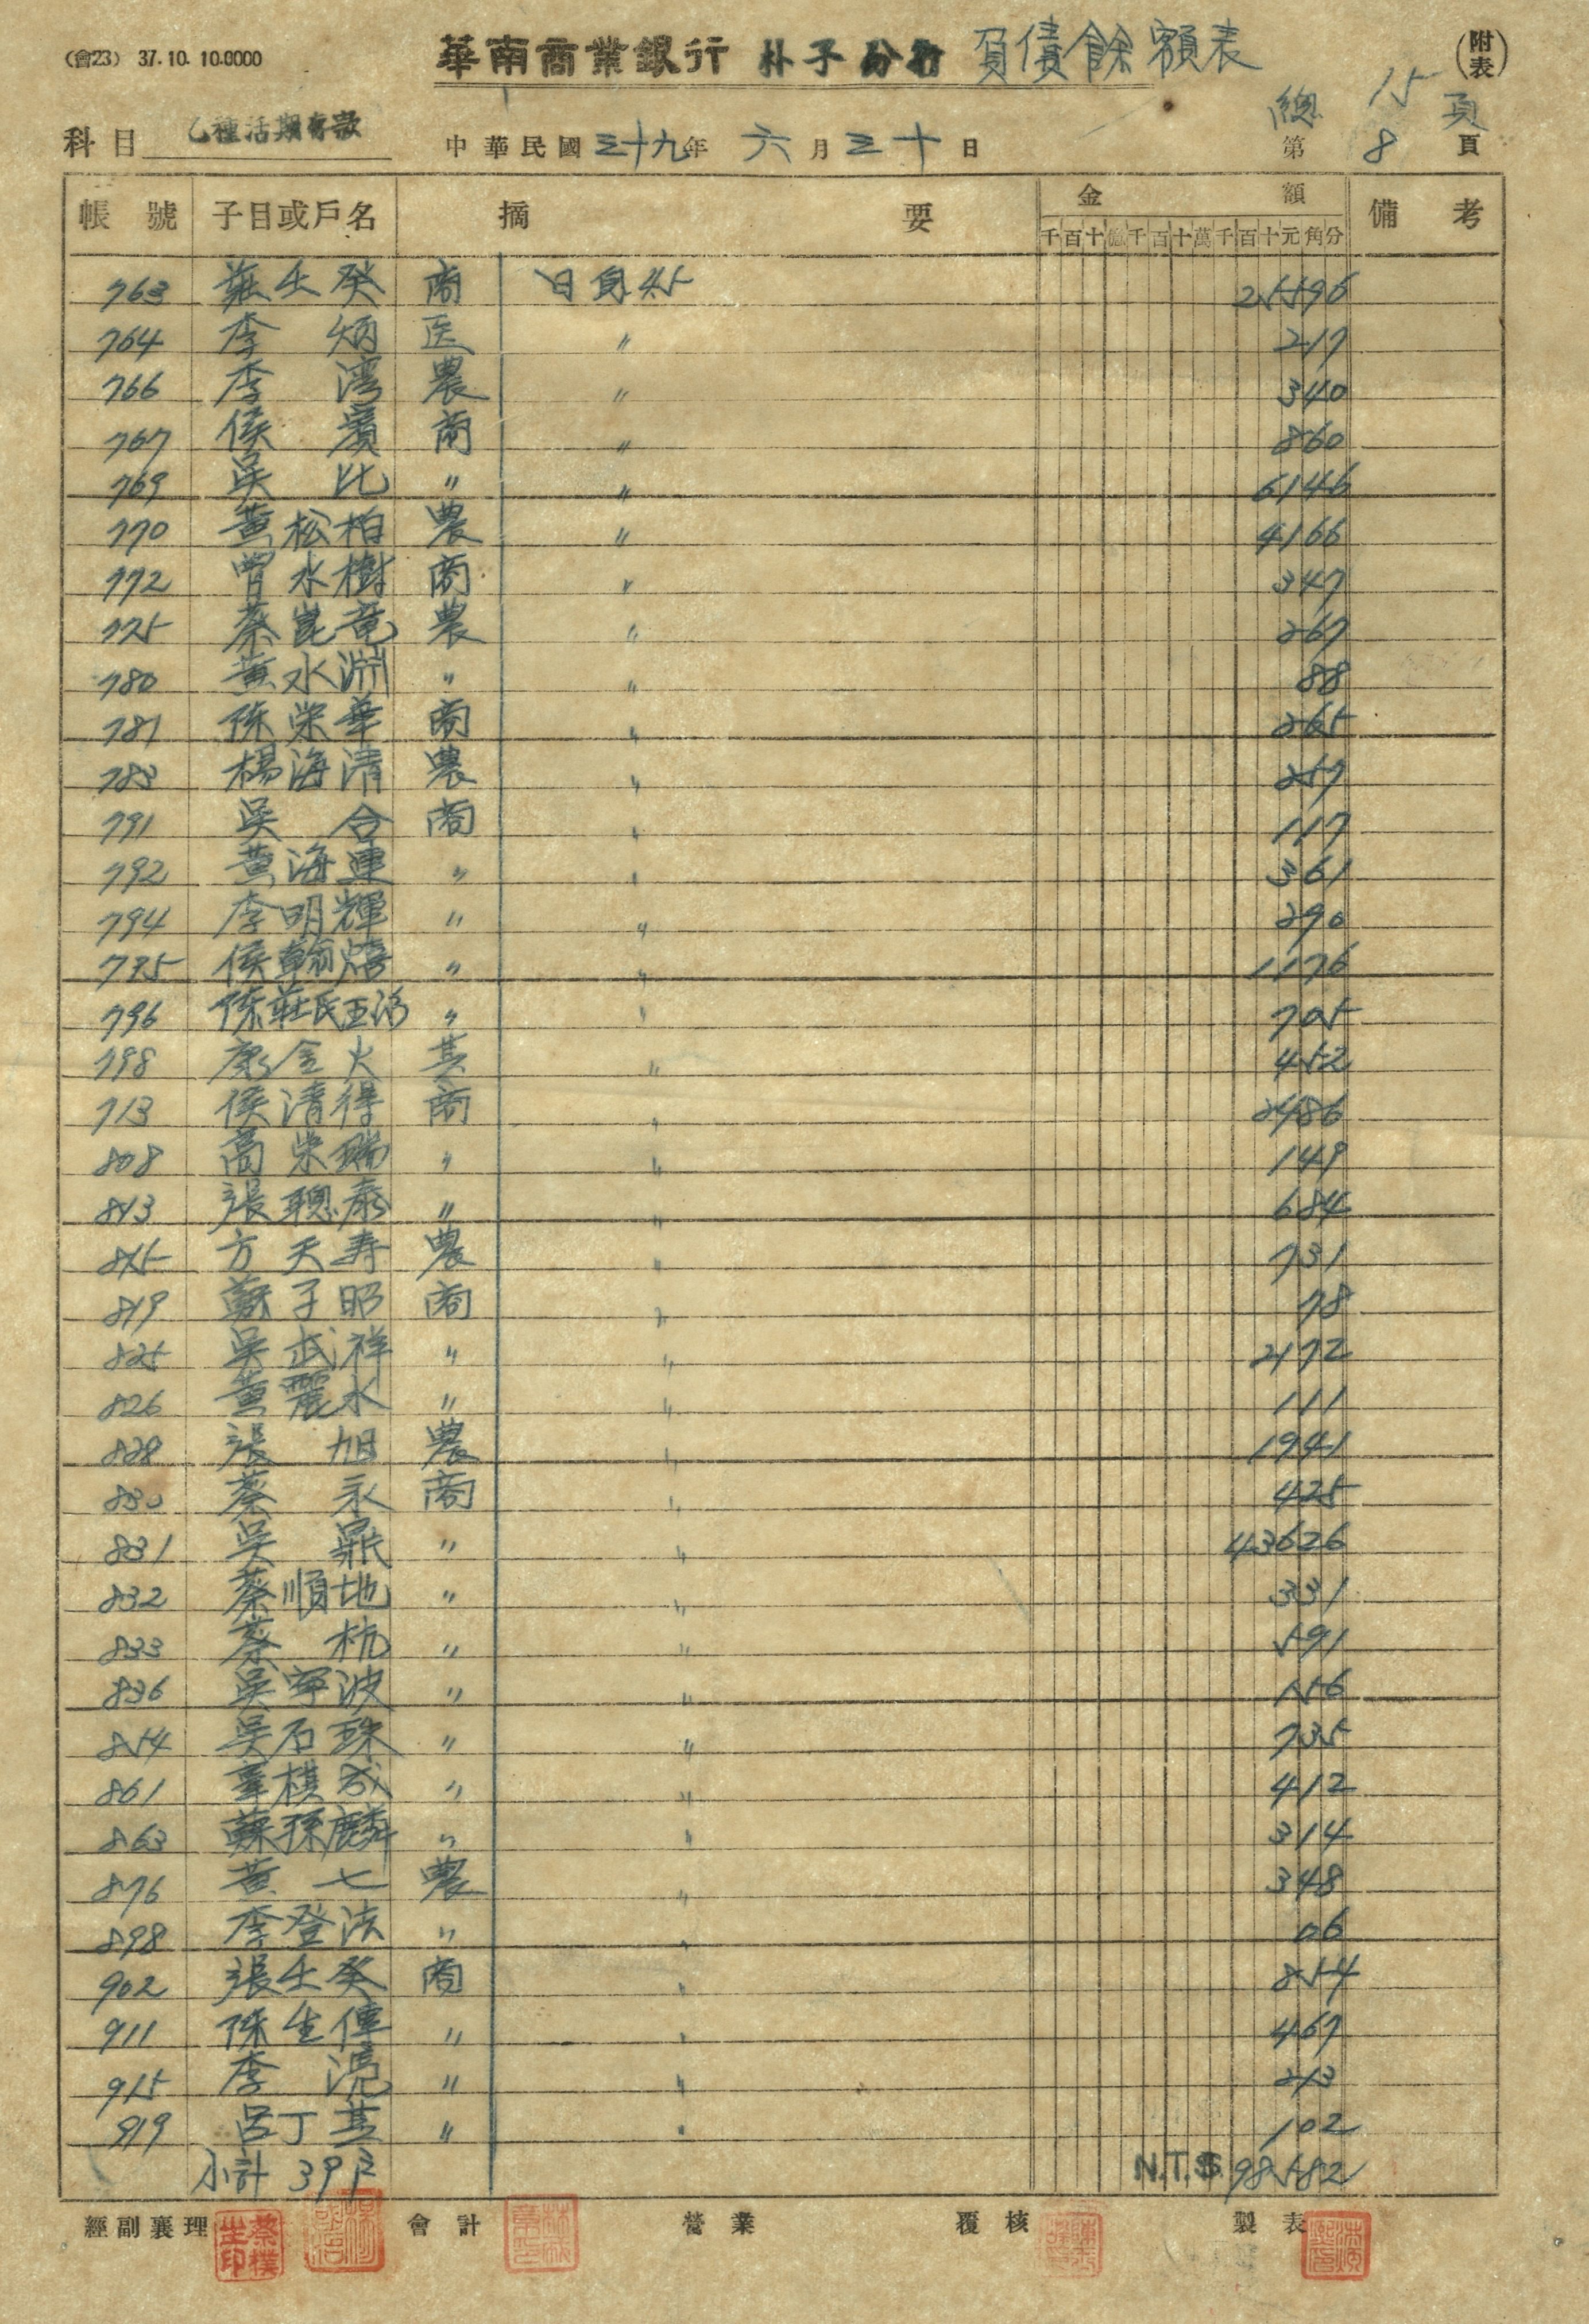 (會23) 37.10.10.0000
華南商業銀行 朴子分行 負債餘額表 (附表)
總 15 頁
科目 乙種活期存款 中華民國三十九年 六月三十日 第 8 頁
帳號 子目或戶名 摘要 金額 備考
千百十億千百十萬千百十元角分
763 莊壬癸 商 日息45 25596
764 李炳 医 〃 217
766 李湾 農 〃 340
767 侯賓 商 〃 860
769 吳比 〃 〃 6146
770 黃松柏 農 〃 4166
772 曾水樹 商 〃 347
775 蔡崑竜 農 〃 267
780 黃水淵 〃 〃 88
781 陳荣華 商 〃 265
783 楊海清 農 〃 257
791 吳合 商 〃 117
792 黃海連 〃 〃 361
794 李明輝 〃 〃 290
795 侯翰熺 〃 〃 1176
796 陳莊氏玉 〃 〃 705
798 康金火 其 〃 452
713 侯清得 商 〃 2486
808 高荣瑞 〃 〃 149
813 張聰泰 〃 〃 684
815 方天寿 農 〃 731
819 蘇子昭 商 〃 78
825 吳武祥 〃 〃 2172
826 黃麗水 〃 〃 111
828 張旭 農 〃 1941
830 蔡永 商 〃 425
831 吳鼎 〃 〃 43626
832 蔡順地 〃 〃 331
833 蔡杭 〃 〃 591
836 吳寧波 〃 〃 156
854 吳石珠 〃 〃 735
861 模成 〃 〃 412
863 蘇孫麟 〃 〃 314
876 黃七 農 〃 348
898 李登法 〃 〃 06
902 張壬癸 商 〃 854
911 陳生傳 〃 〃 467
915 李湸 〃 〃 213
919 呂丁其 〃 〃 102
小計 39戶 N.T.$ 98582
經副襄理 會計 營業 覆核 製表
蔡樸生印